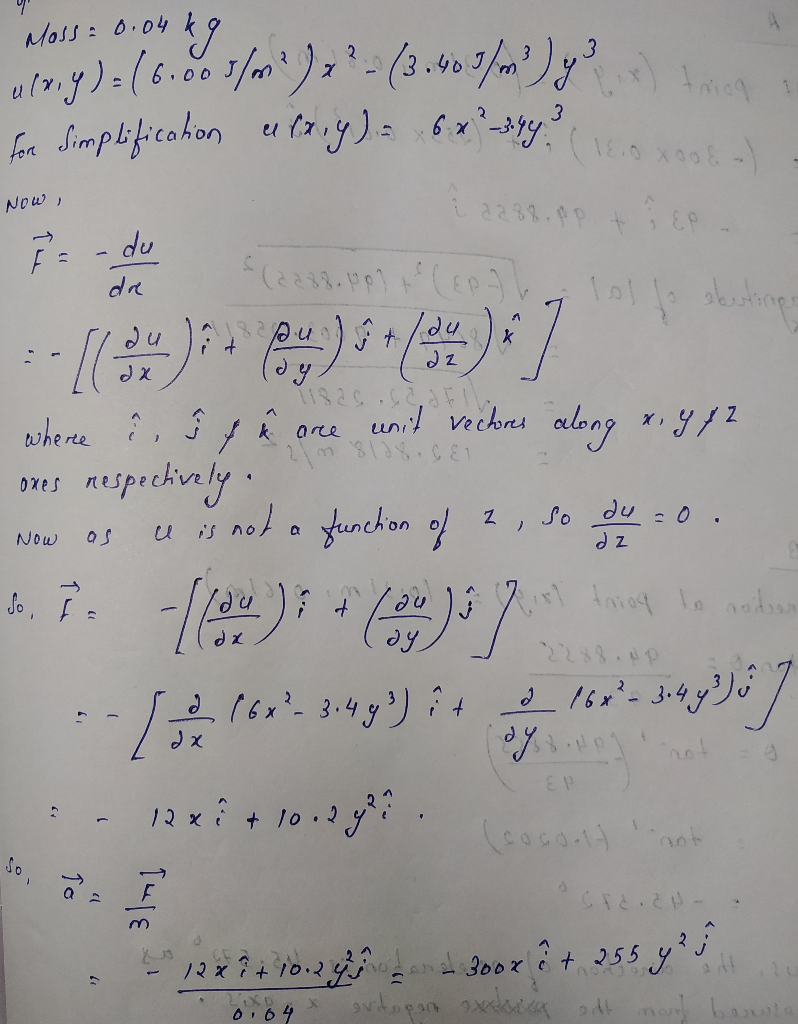 Mass = 0.04 kg
u(x,y) = (6.00 J/m²) x² - (3.40 J/m³) y³
for Simplification u(x,y) = 6x² - 3.4y³
Now,
F⃗ = - du/dx
= - [(∂u/∂x) î + (∂u/∂y) ĵ + (∂u/∂z) k̂]
where î, ĵ & k̂ are unit vectors along x, y & z
axes respectively.
Now as u is not a function of z, so ∂u/∂z = 0.
So, F⃗ = -[(∂u/∂x) î + (∂u/∂y) ĵ]
= - [∂/∂x (6x² - 3.4y³) î + ∂/∂y (6x² - 3.4y³) ĵ]
= - 12x î + 10.2 y² î.
So, a⃗ = F⃗/m
= (- 12x î + 10.2 y² ĵ)/0.04 = - 300x î + 255 y² ĵ